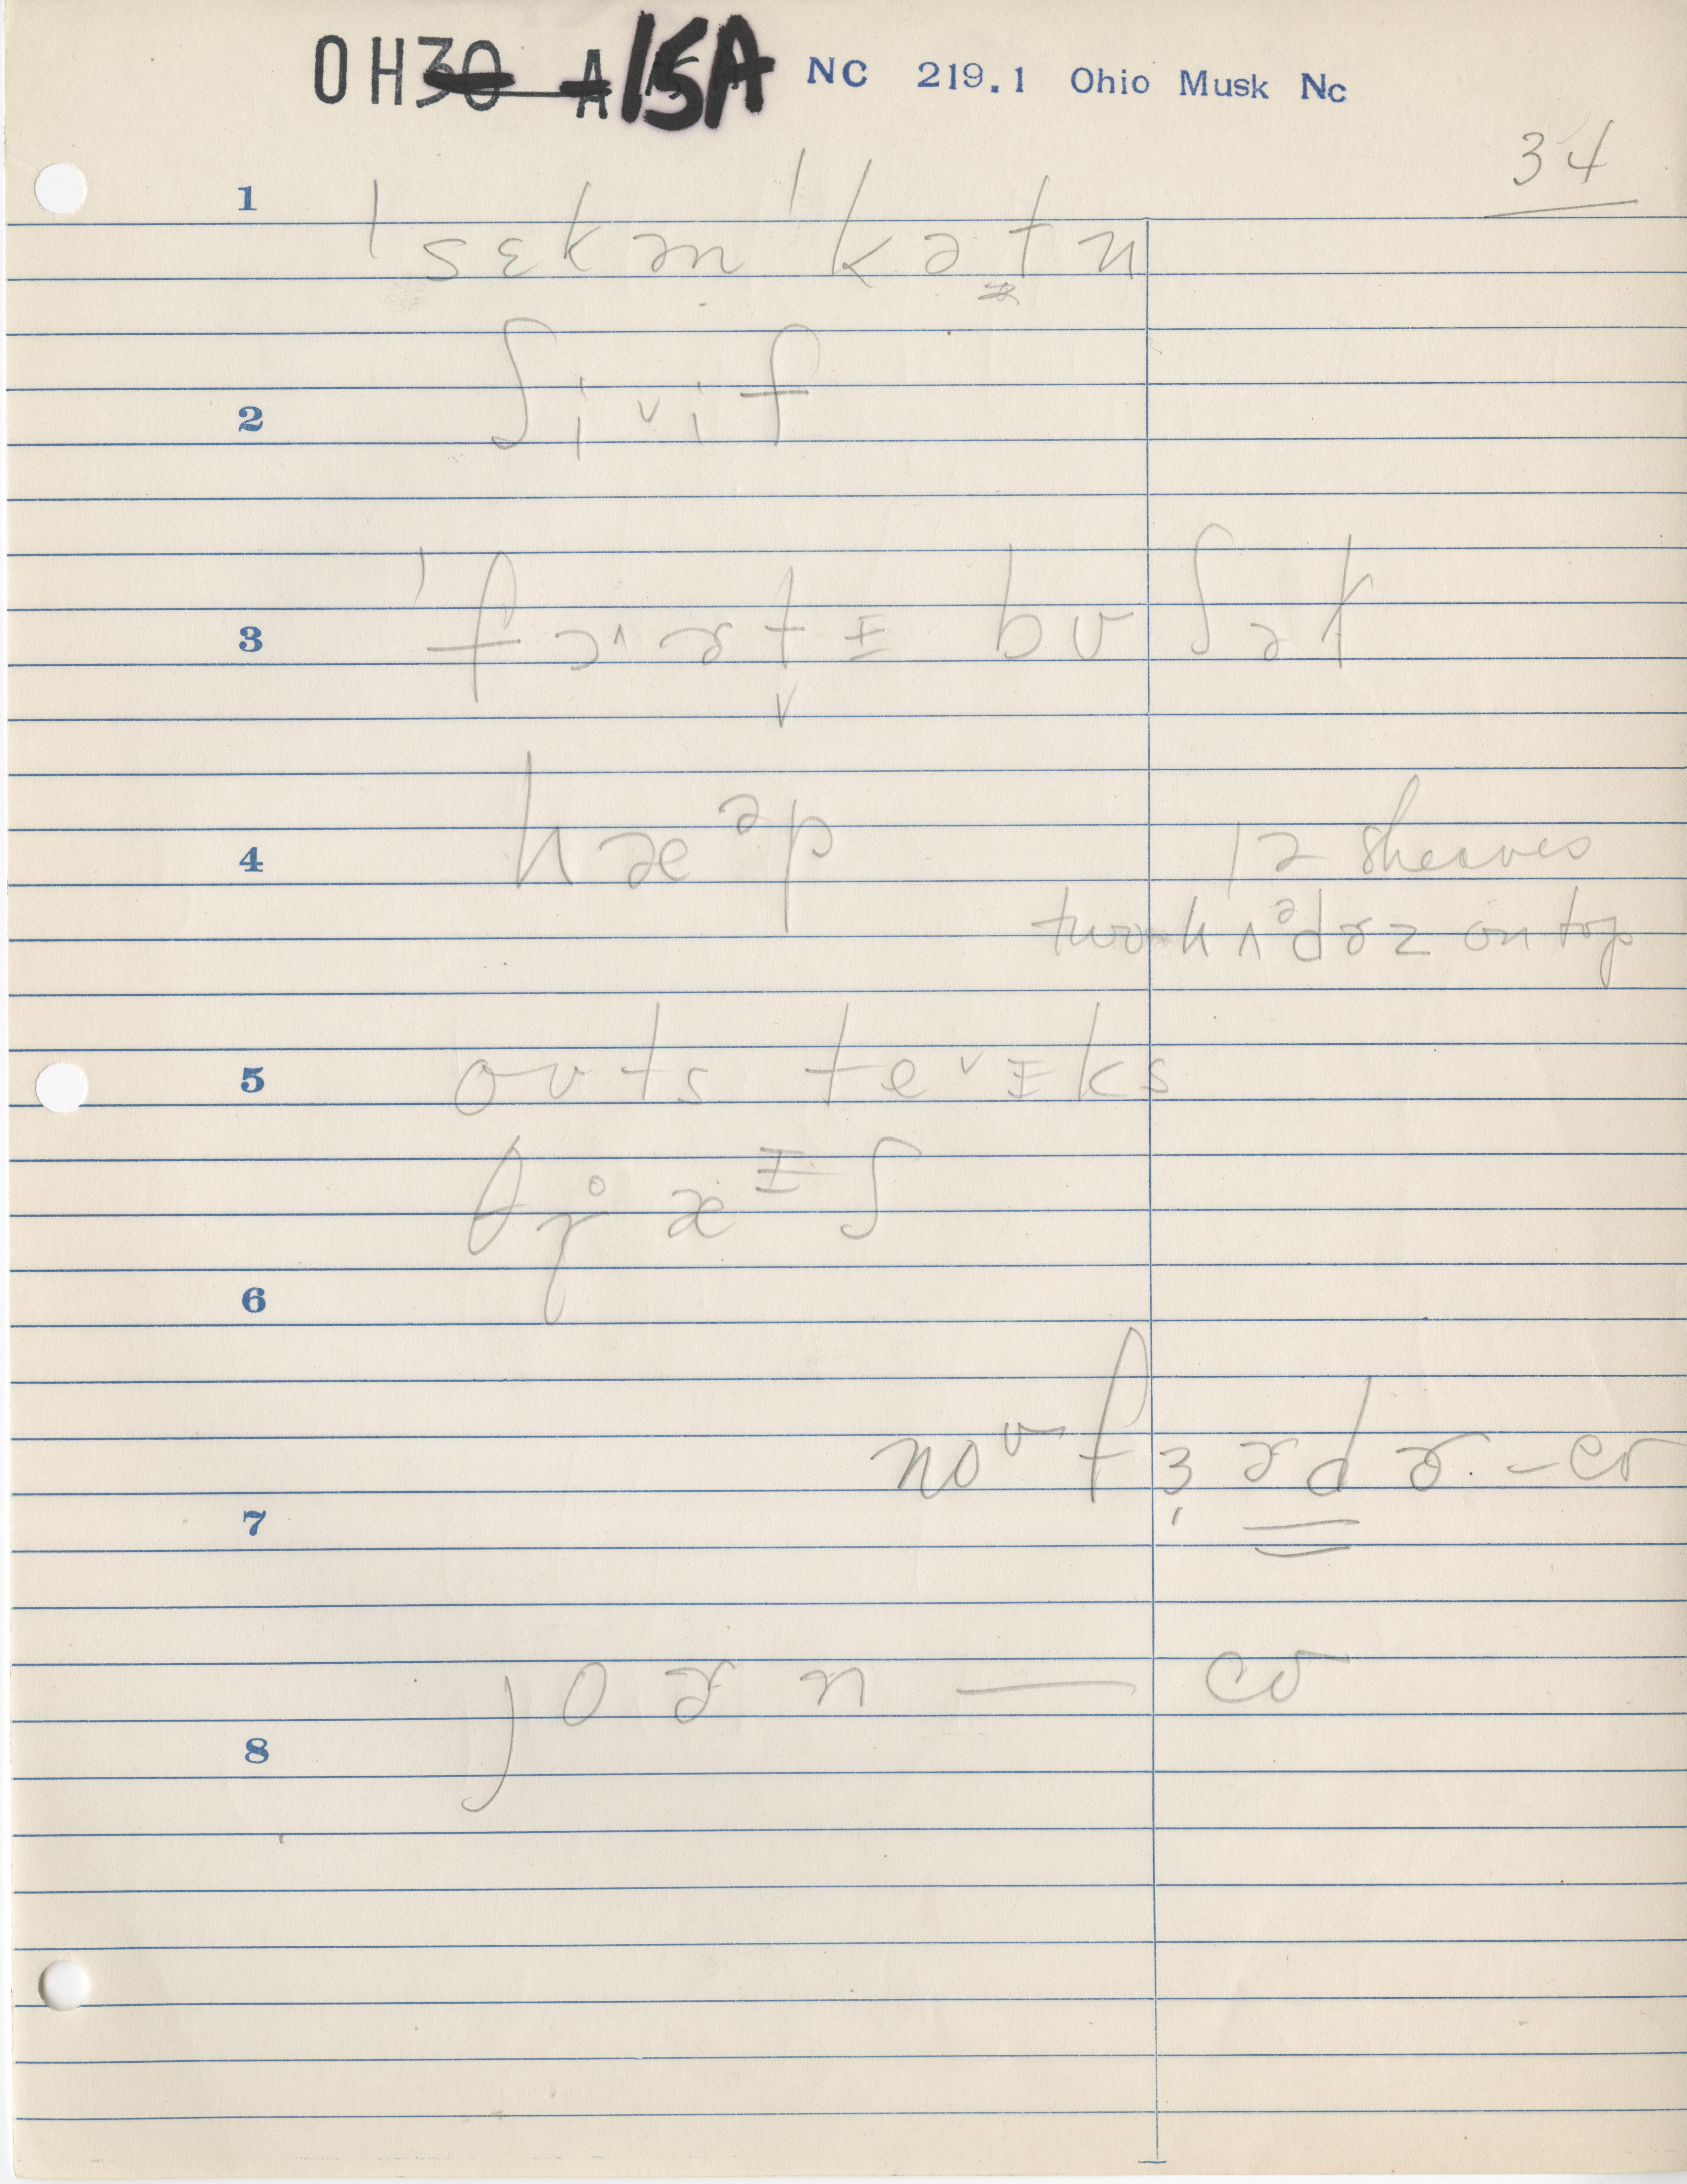 OH30 A15A NC 219.1 Ohio Musk Nc
34
1
ˈsɛkənˈkətn
2
ʃi˕vi˔f
3
ˈfɔ˄ɚt̬ɨ bʊʃət
4
hæᵊp
12 sheaves
two hʌᵊdɚz on top
5
oʊts te˅ɨks
θj̊æᶤʃ
6
noʊfɜ˒ɚdɚ - cv
7
joɚn — cv
8